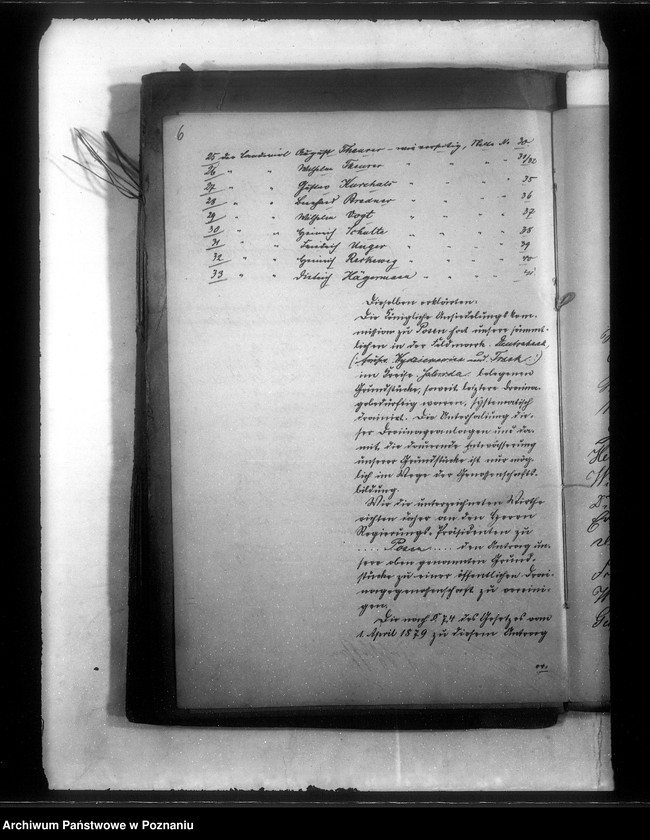 6
25 der Landwirt August Theurer - wie vorseitig, Stelle No 30
26 " " Wilhelm Theurer " " " 31/32
27 " " Gustav " " " 35
28 " " Bredner " " " 36
29 " " Wilhelm Vogt " " " 37
30 " " Heinrich Schulte " " " 38
31 " " Friedrich Unger " " " 39
32 " " Heinrich Rerkewey " " " 40
33 " " Dietrich Hägermann " " "
Dieselben erklärten:
Die Königliche Ansiedelungskom-
mission zu Posen hat unsere sämmt-
lichen in der Feldmark
(: früher und :)
im Kreise belegenen
Grundstücke, soweit letztere draina-
gebedürftig waren, systematisch
drainirt. Die Unterhaltung die-
ser Drainageanlagen und da-
mit die dauernde Entwässerung
unserer Grundstücke ist nur mög-
lich im Wege der Genossenschafts-
bildung.
Wir die unterzeichneten Wirthe
richten daher an den Herrn
Regierungs-Präsidenten zu
.... Posen .... den Antrag un-
sere oben genannten Grund-
stücke zu einer öffentlichen Drai-
nagegenossenschaft zu vereini-
gen.
Die nach § 74 des Gesetzes vom
1. April 1879 zu diesem Antrag
Archiwum Państwowe w Poznaniu